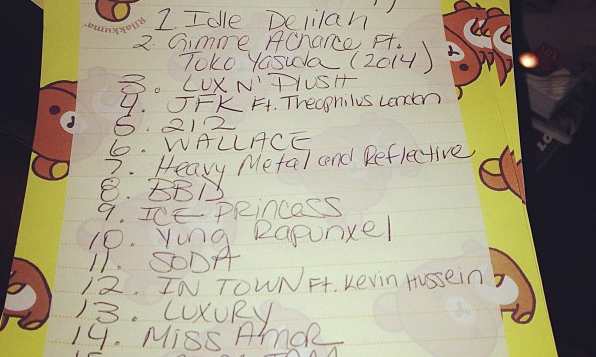 Rilakkuma
1. Idle Delilah
2. Gimme A Chance Ft.
Toko Yasuda (2014)
3. LUX N' PLUSH
4. JFK Ft. Theophilus London
5. 212
6. WALLACE
7. Heavy Metal and Reflective
8. BBD
9. ICE PRINCESS
10. Yung Rapunxel
11. SODA
12. IN TOWN Ft. Kevin Hussein
13. LUXURY
14. MISS AMOR